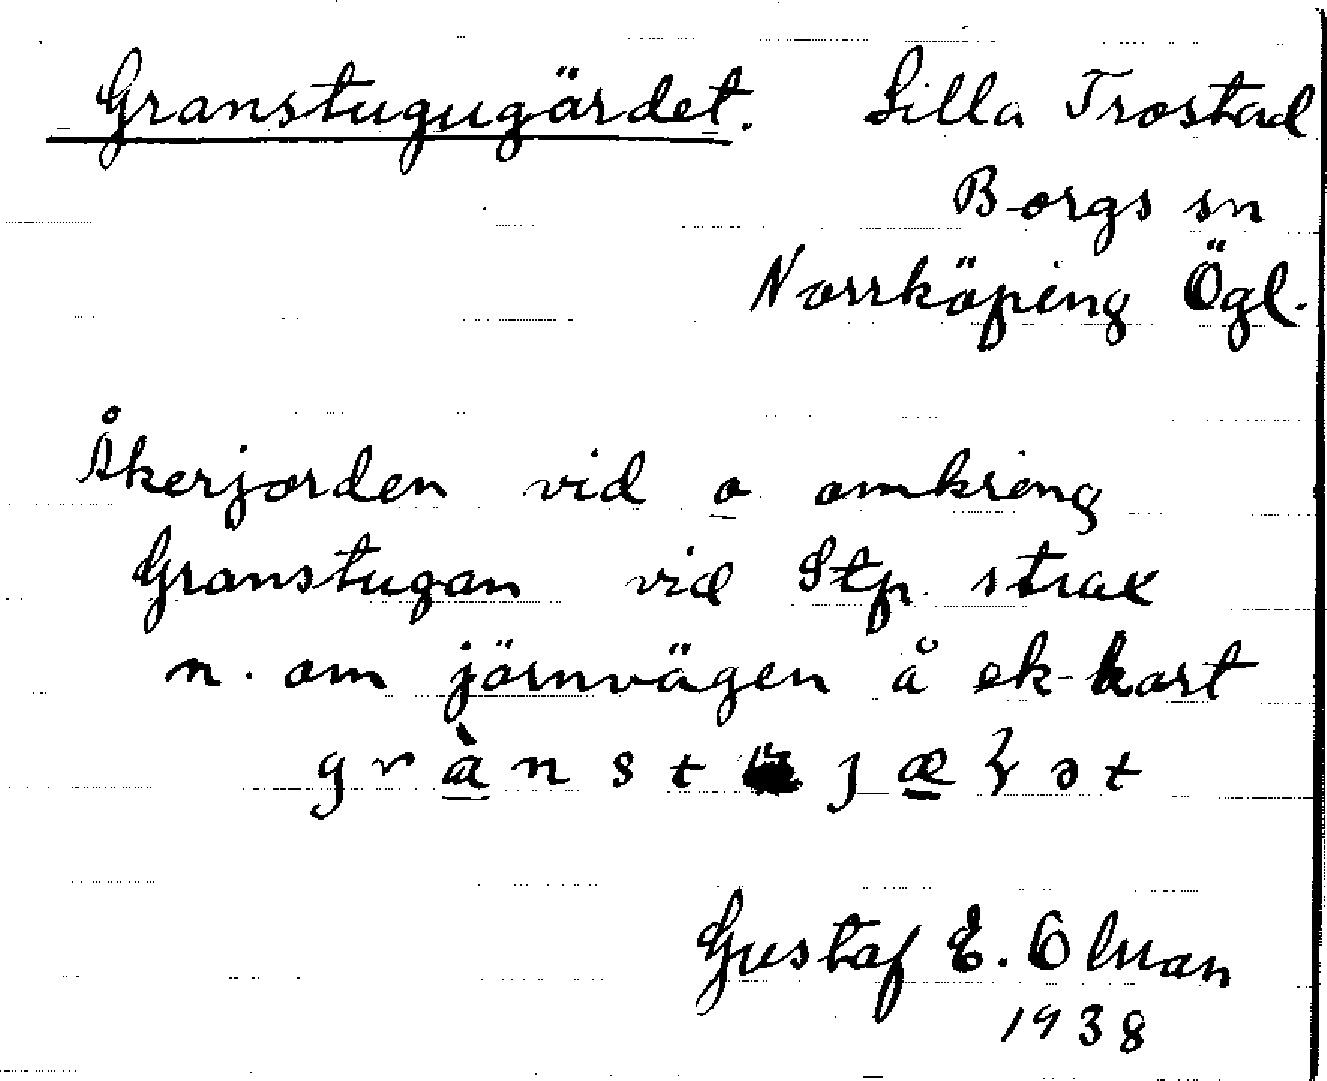 Granstugugärdet. Lilla Trostad
Borgs sn
Norrköping Ögl.
Åkerjorden vid o omkring
Granstugan vid Stp. strax
n. om järnvägen å ek-kart
Gustaf E. Olman
1938